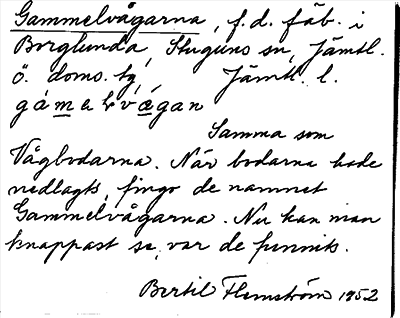 Gammelvågarna, f.d. fäb. i
Borglunda, Stuguns sn, Jämtl.
ö. doms. tg, Jämtl. l.
Samma som
Vågbodarna. När bodarna hade
nedlagts, fingo de namnet
Gammelvågarna. Nu kan man
knappast se, var de funnits.
Bertil Flemström 1952